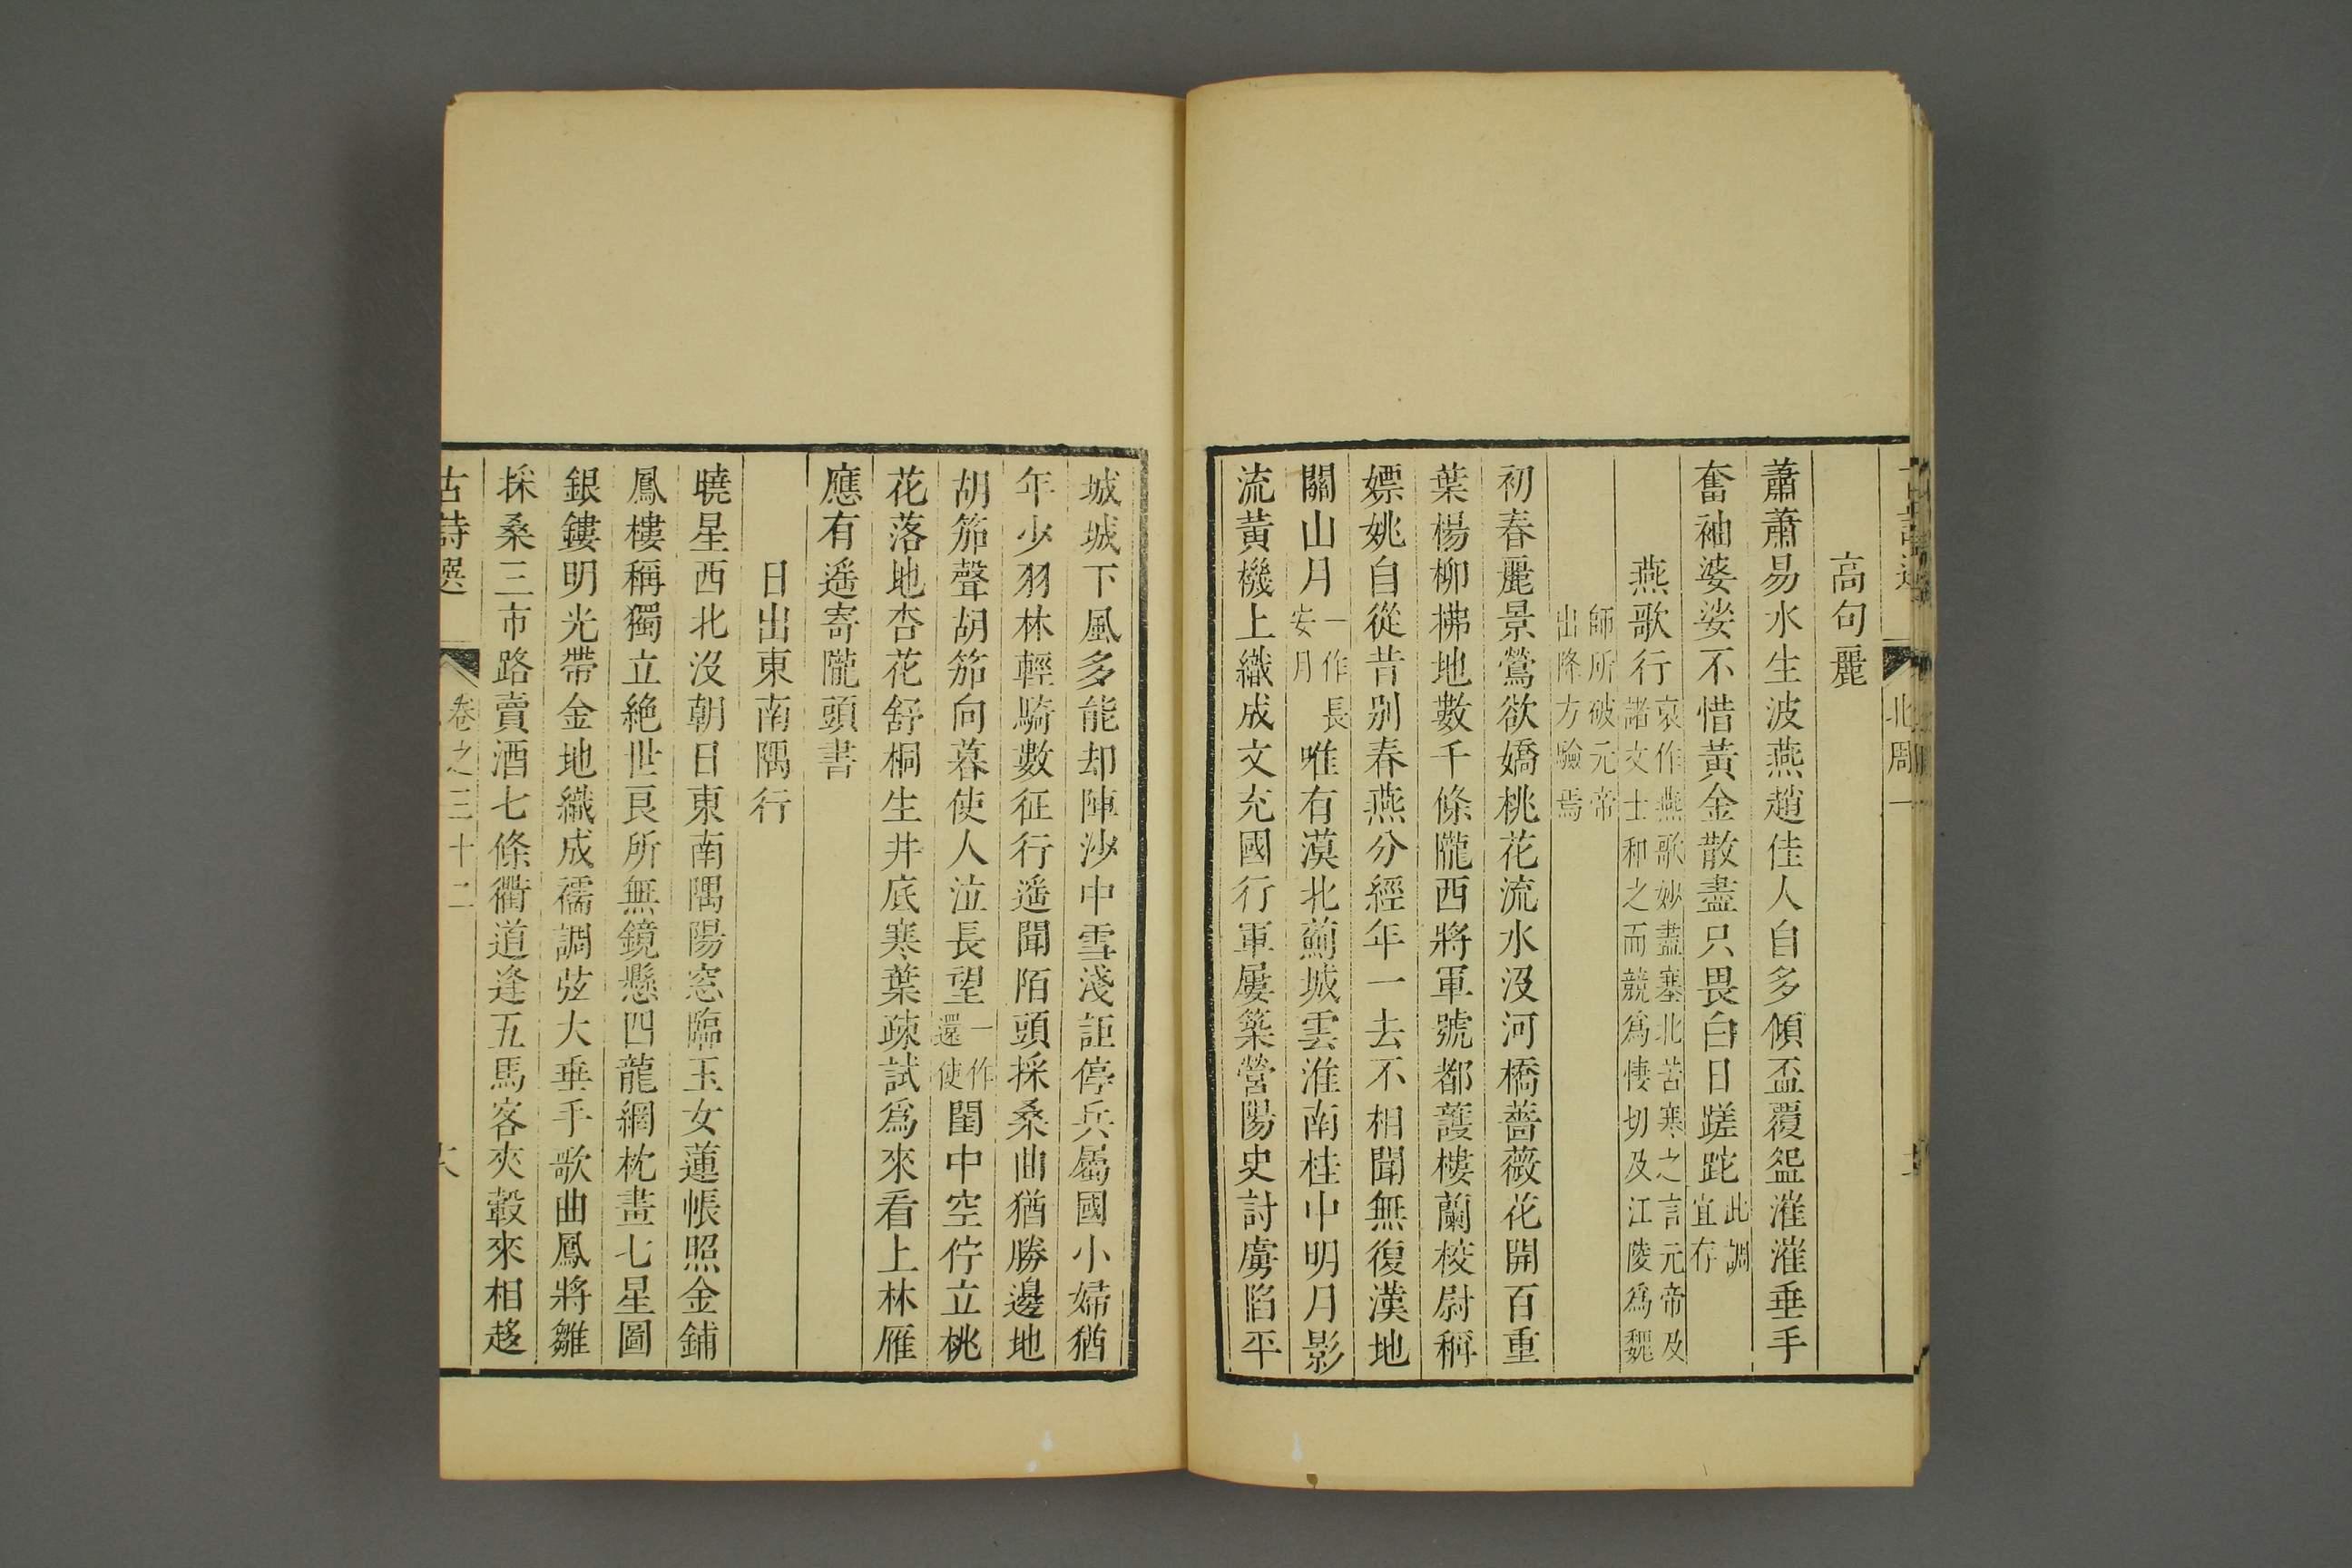 北周一
高句麗
蕭蕭易水生波燕趙佳人自多傾盃覆盌漼漼垂手
奮袖婆娑不惜黃金散盡只畏白日蹉跎此調宜存
燕歌行裒作燕歌妙盡塞北苦寒之言元帝及諸文士和之而競爲悽切及江陵爲魏
師所破元帝出降方驗焉
初春麗景鶯欲嬌桃花流水沒河橋薔薇花開百重
葉楊柳拂地數千條隴西將軍號都護樓蘭校尉稱
嫖姚自從昔别春燕分經年一去不相聞無復漢地
關山月一作長安月唯有漠北薊城雲淮南桂中明月影
流黃機上織成文充國行軍屢築營陽史討虜陷平
城城下風多能却陣沙中雪淺詎停兵屬國小婦猶
年少羽林輕騎數征行遥聞陌頭採桑曲猶勝邊地
胡笳聲胡笳向暮使人泣長望一作還使閨中空佇立桃
花落地杏花舒桐生井底寒葉疎試爲來看上林雁
應有遥寄隴頭書
日出東南隅行
曉星西北沒朝日東南隅陽窓臨玉女蓮帳照金鋪
鳳樓稱獨立絶世良所無鏡懸四龍網枕畫七星圖
銀鏤明光帶金地織成襦調弦大垂手歌曲鳳將雛
採桑三市路賣酒七條衢道逢五馬客夾轂來相趍
古詩選 卷之三十二